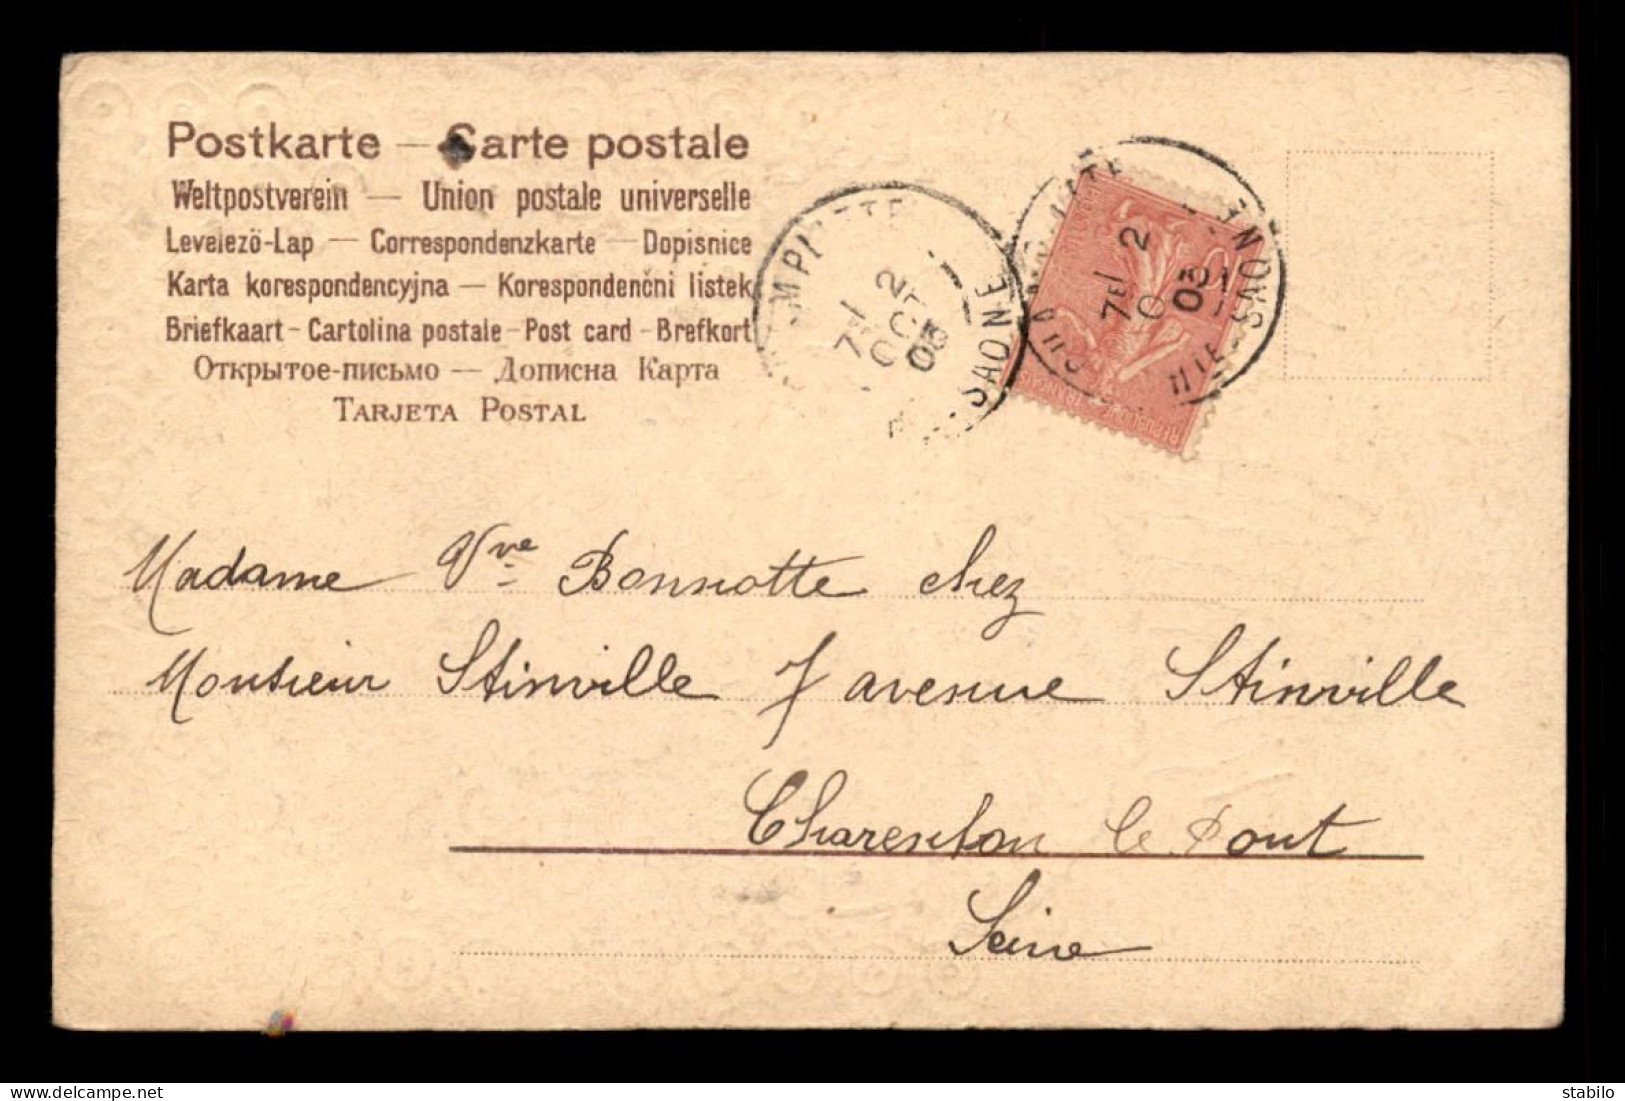 Postkarte — Carte postale
Weltpostverein — Union postale universelle
Levelező-Lap — Correspondenzkarte — Dopisnice
Karta korespondencyjna — Korespondenční listek
Briefkaart - Cartolina postale - Post card - Brefkort
Открытое-письмо — Дописна Карта
Tarjeta Postal
7E/ 2
OCT
05
SAONE
7E/ 2
05
HTE-SAONE
Madame Vve Bonnotte chez
Monsieur Stinville 7 avenue Stinville
Charenton le Pont
Seine
stabilo